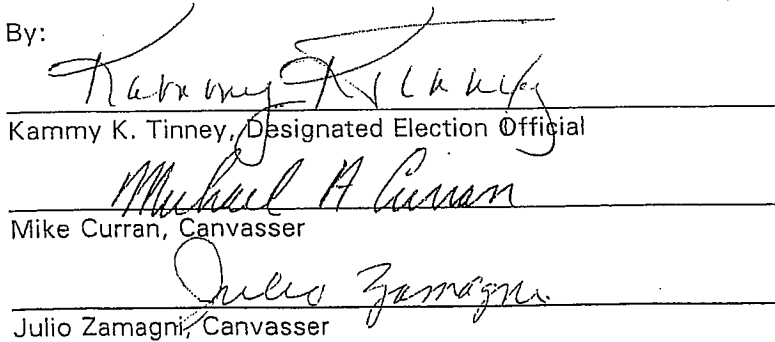 By:
Kammy K Tinney
Kammy K. Tinney, Designated Election Official
Michael A Curran
Mike Curran, Canvasser
Julio Zamagni
Julio Zamagni, Canvasser